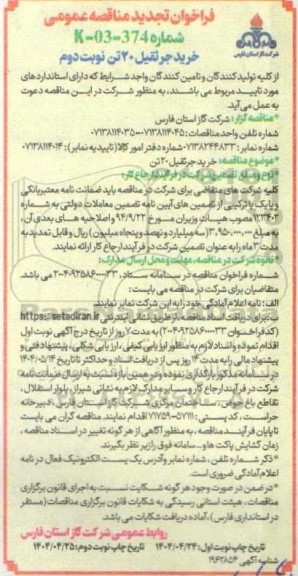 فراخوان تجدید مناقصه عمومی
شماره K-03-374
خرید جرثقیل ۲۰ تن نوبت دوم
شرکت گاز استان فارس
از کلیه تولید کنندگان و تامین کنندگان واجد شرایط که دارای استانداردهای
مورد تایید مربوط می باشند، به منظور شرکت در این مناقصه دعوت
به عمل می‌آید.
*مناقصه گزار: شرکت گاز استان فارس
شماره تلفن واحد مناقصات:
شماره نمابر: ۰۷۱۳۸۲۴۴۸۳۳ شماره دفتر امور کالا (تاییدیه نمابر):
*موضوع مناقصه: خرید جرثقیل ۲۰ تن
*نوع و مبلغ تضمین شرکت در فرآیند ارجاع کار:
کلیه شرکت های متقاضی برای شرکت در مناقصه باید ضمانت نامه معتبر بانکی
و یا یک یا ترکیبی از تضمین های آیین نامه تضمین معاملات دولتی به شماره
۱۲۳۴۰۲ مصوب هیات وزیران مورخ ۹۴/۹/۲۲ و اصلاحیه های بعدی آن،
به مبلغ ۳,۹۵۰,۰۰۰,۰۰۰ (سه میلیارد و نهصد و پنجاه میلیون) ریال و قابل تمدید به
مدت ۳ ماه را به عنوان تضمین شرکت در فرآیند ارجاع کار ارائه نمایند.
*نحوه شرکت در مناقصه، مهلت و محل ارسال مدارک:
شماره فراخوان مناقصه در سامانه ستاد، ۲۰۰۴۰۹۲۵۸۶۰۰۰۰۳۳ می باشد.
متقاضیان برای شرکت در مناقصه می بایست:
الف: نامه اعلام آمادگی خود را به این شرکت نمایر نمایند.
ب: برای دریافت اسناد مناقصه، از طریق نشانی اینترنتی https://setadiran.ir
(کد فراخوان ۲۰۰۴۰۹۲۵۸۶۰۰۰۰۳۳) به مدت ۷ روز از تاریخ درج آگهی نوبت اول
اقدام نموده و اسناد لازم به منظور ارزیابی کیفی، ارزیابی شکلی، پیشنهاد فنی و
پیشنهاد مالی را به مدت ۱۴ روز پس از دریافت اسناد و حداکثر تا تاریخ ۱۴۰۴/۰۵/۱۴
در سامانه مذکور بارگذاری نموده و در همین بازه نسبت به ارسال ضمانت نامه
شرکت در فرآیند ارجاع کار و سایر مدارک لازم به نشانی شیراز، بلوار استقلال،
تقاطع باغ حوض، ساختمان مرکزی شرکت گاز استان فارس، دبیرخانه
حراست، کد پستی: ۵۷۱۱۱-۷۱۷۵۹ اقدام نمایند. مناقصه گران می بایست
تا پایان فرآیند مناقصه، به منظور آگاهی از هر گونه تغییر در اسناد مناقصه،
زمان گشایش پاکت ها و... سامانه فوق را زیر نظر بگیرند.
*ذکر شماره تلفن، شماره نمابر و آدرس یک پست الکترونیک فعال در نامه
اعلام آمادگی ضروری است.
*در ضمن در صورت وجود هر گونه شکایت نسبت به اجرای قانون برگزاری
مناقصات، هیئت استانی رسیدگی به شکایات قانون برگزاری مناقصات (مستقر
در استانداری فارس)، آماده دریافت شکایات می باشد.
روابط عمومی شرکت گاز استان فارس
تاریخ چاپ نوبت اول: ۱۴۰۴/۰۴/۲۴ تاریخ چاپ نوبت دوم: ۱۴۰۴/۰۴/۲۵
شناسه آگهی ۱۹۶۲۸۵۴